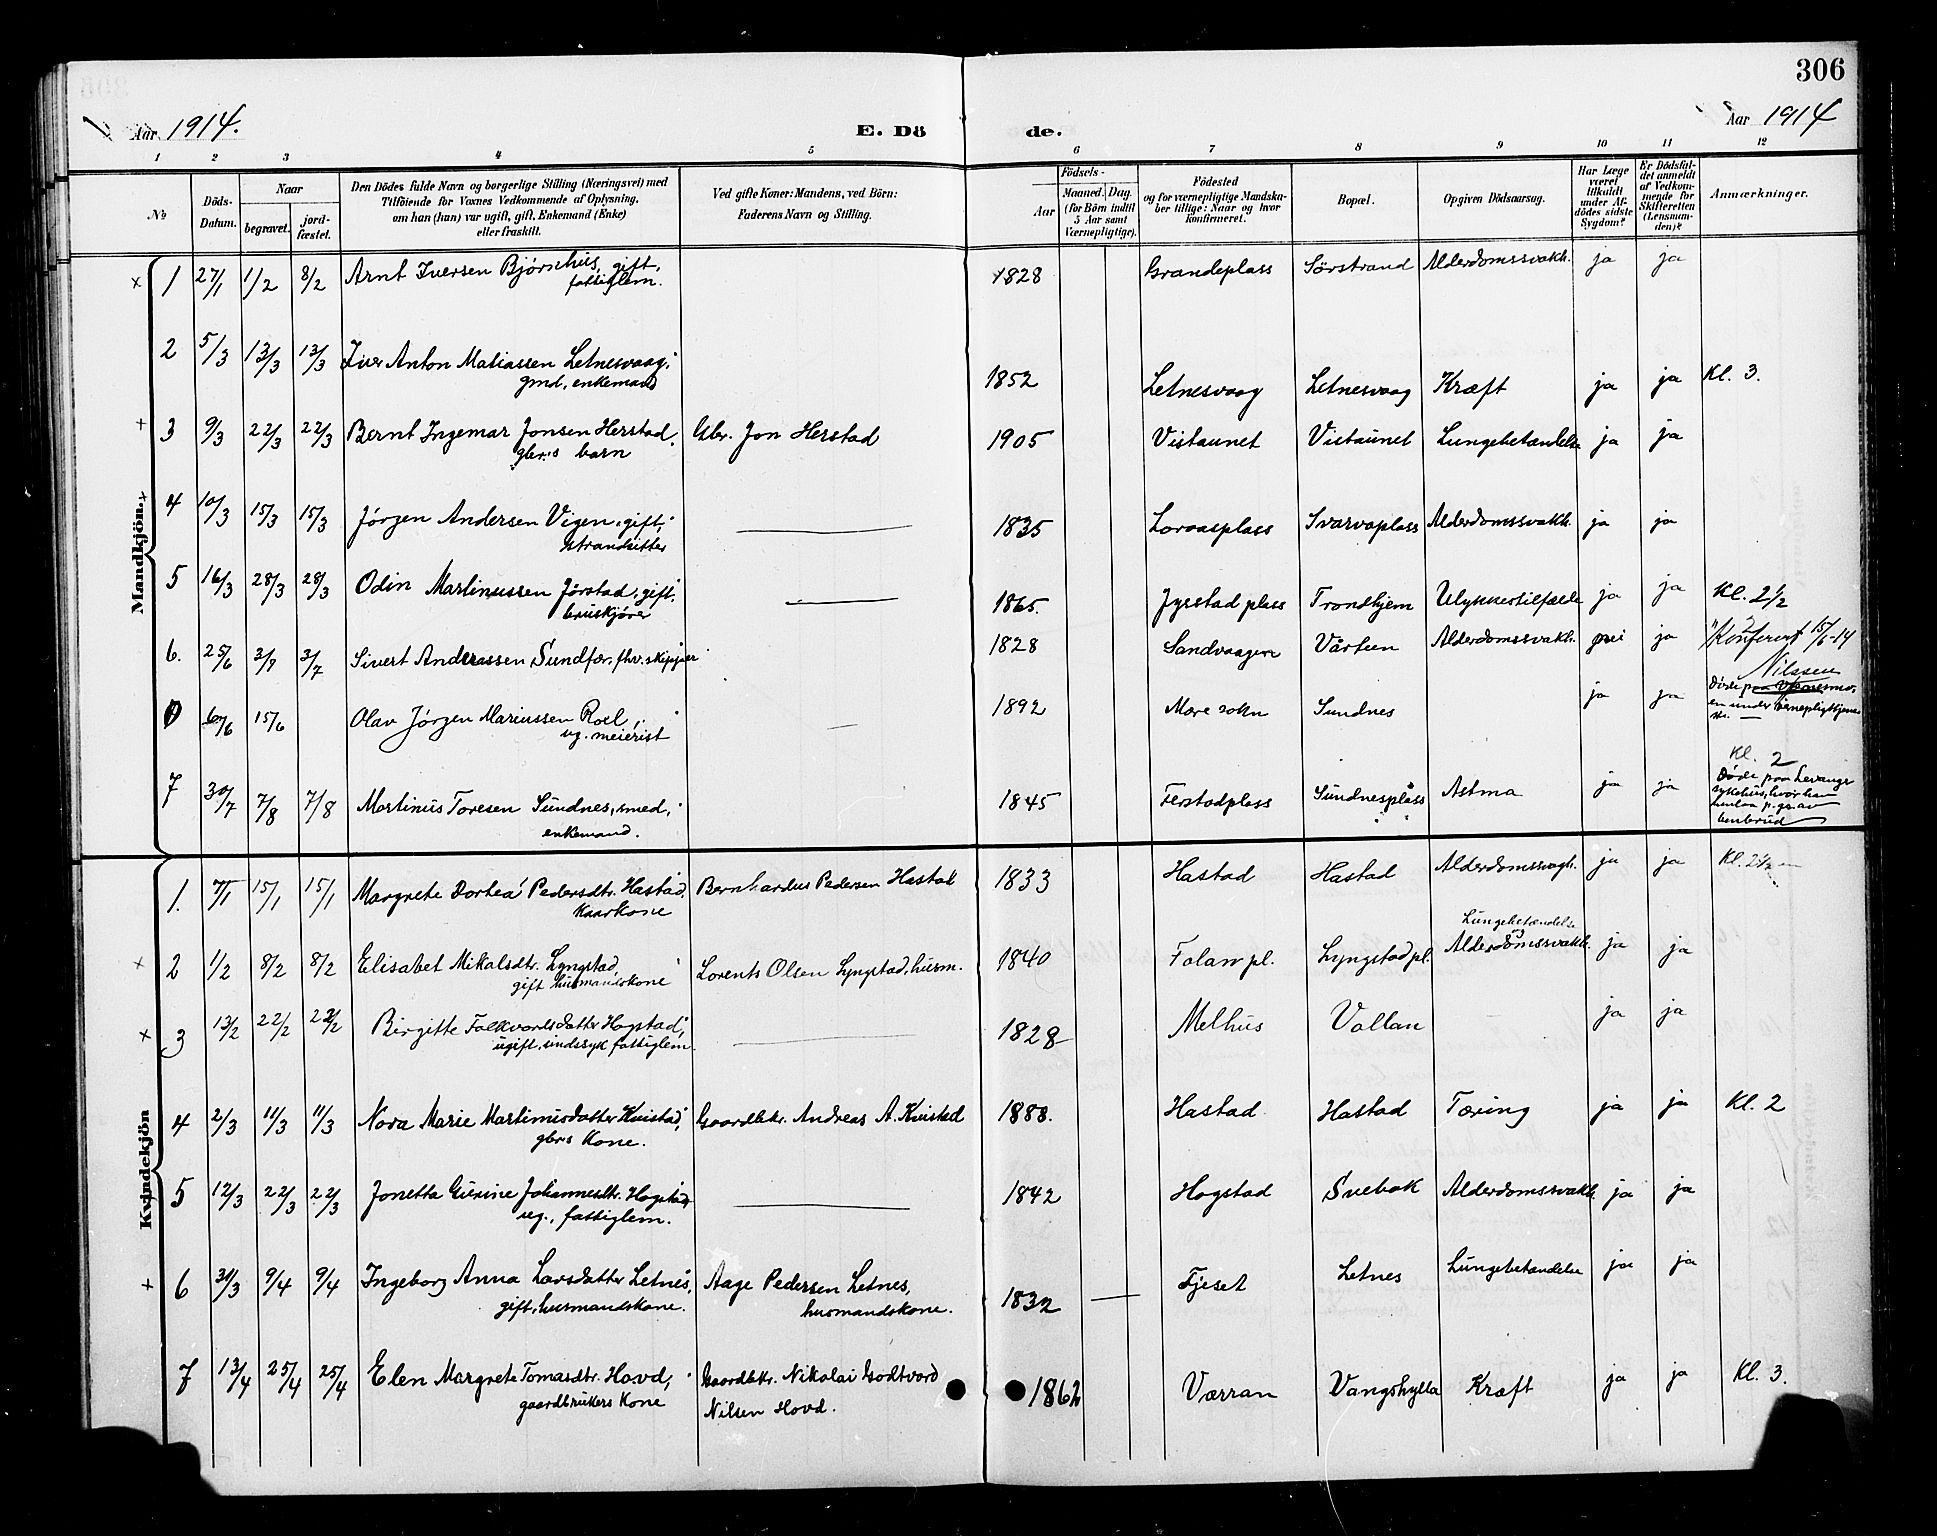 306
Aar 1914.
E. Döde.
Aar 1914
1 2 3 4 5 6 7 8 9 10 11 12
No
Döds-Datum.
Naar
begravet.
jordfæstet.
Den Dödes fulde Navn og borgerlige Stilling (Næringsvei) med
Tilföiende for Voxnes Vedkommende af Oplysning,
om han (hun) var ugift, gift, Enkemand (Enke)
eller fraskilt.
Ved gifte Koner: Mandens, ved Börn:
Faderens Navn og Stilling.
Födsels-
Aar
Maaned. Dag.
(for Börn indtil
5 Aar samt
Værnepligtige).
Födested
og for værnepligtige Mandskaber tillige: Naar og hvor
konfirmeret.
Bopæl.
Opgiven Dödsaarsag.
Har Læge
været
tilkaldt
under Afdödes sidste
Sygdom?
Er Dödsfaldet anmeldt
af Vedkommende for
Skifteretten
(Lensmanden)?
Anmærkninger.
Mandkjön.
x 1 27/1 1/2 8/2 Arnt Iversen Bjørnhus, gift, 1828 Grandeplass Sörstrand Alderdomssvakh. ja ja
fattiglem.
2 5/3 13/3 13/3 Iver Anton Matiassen Letnesvaag, 1852 Letnesvaag Letnesvaag Kræft ja ja Kl. 3.
gmd, enkemand
+ 3 9/3 22/3 22/3 Bernt Ingemar Jonsen Herstad, Gbr. Jon Herstad 1905 Vistaunet Vistaunet Lungebetændelse ja ja
gbr.s barn
x 4 10/3 15/3 15/3 Jørgen Andersen Vigen, gift, 1835 Loraasplass Svarvaplass Alderdomssvakh. ja ja
strandsitter
5 16/3 28/3 28/3 Odin Martinussen Jørstad, gift, 1865. Jysstad plass Trondhjem Ulykkestilfælde ja ja Kl. 2½
bruskjører
6. 25/6 3/7 3/7 Sivert Andreassen Sundfær, fhv. skipper 1828 Sandvaagen Vårteen Alderdomssvakh. nei ja
Konferer 15/6-14
0 6/6 15/6 Olav Jørgen Mariussen Roel, 1892 Mære sokn Sundnes ja ja
ug. meierist
Nilssen
Døde paa
en under værnepligttjenes
7 30/7 7/8 7/8 Martinus Toresen Sundnes, smed, 1845 Ferstadplass Sundnesplass Astma ja ja Kl. 2
enkemand.
Døde paa Levanger
sykehus, hvor han
henlaa p. gr. av
benbrud
Kvindekjön
1. 7/1 15/1 15/1 Margrete Dortea Pedersdtr. Hastad, Bernhardus Pedersen Hastad 1833 Hastad Hastad Alderdomssvagh. ja ja Kl. 2½
Kaarkone
x 2 1/2 8/2 8/2 Elisabet Mikalsdtr. Lyngstad, Lorents Olsen Lyngstad, husm. 1840 Folan pl. Lyngstad pl. Lungebetændelse og Alderdomssvakh. ja ja
gift husmandskone
x 3 13/2 22/2 22/2 Birgitte Falkvardsdatter Hogstad, 1828 Melhus Vollan ja ja
ugift, sindssyk fattiglem.
4 2/3 11/3 11/3 Nora Marie Martinusdatter Kvistad, Gaardbkr. Andreas A. Kvistad 1888. Hastad Hastad Tæring ja ja Kl. 2
gbr.s Kone.
5 12/3 22/3 22/3 Jonetta Gurine Johannesdtr. Hogstad, 1842 Hogstad Svebak Alderdomssvakh. ja ja
ug., fattiglem.
+ 6 31/3 9/4 9/4 Ingeborg Anna Larsdatter Letnes, Aage Pedersen Letnes, 1832 Fjeset Letnes Lungebetændelse ja ja
gift, husmandskone. husmandskone.
7 13/4 25/4 25/4 Elen Margrete Tomasdtr. Hovd, Gaardbkr. Nikolai Godtvard 1862 Værran Vangshylla Kræft ja ja Kl. 3.
gaardbrukers Kone Nilsen Hovd.